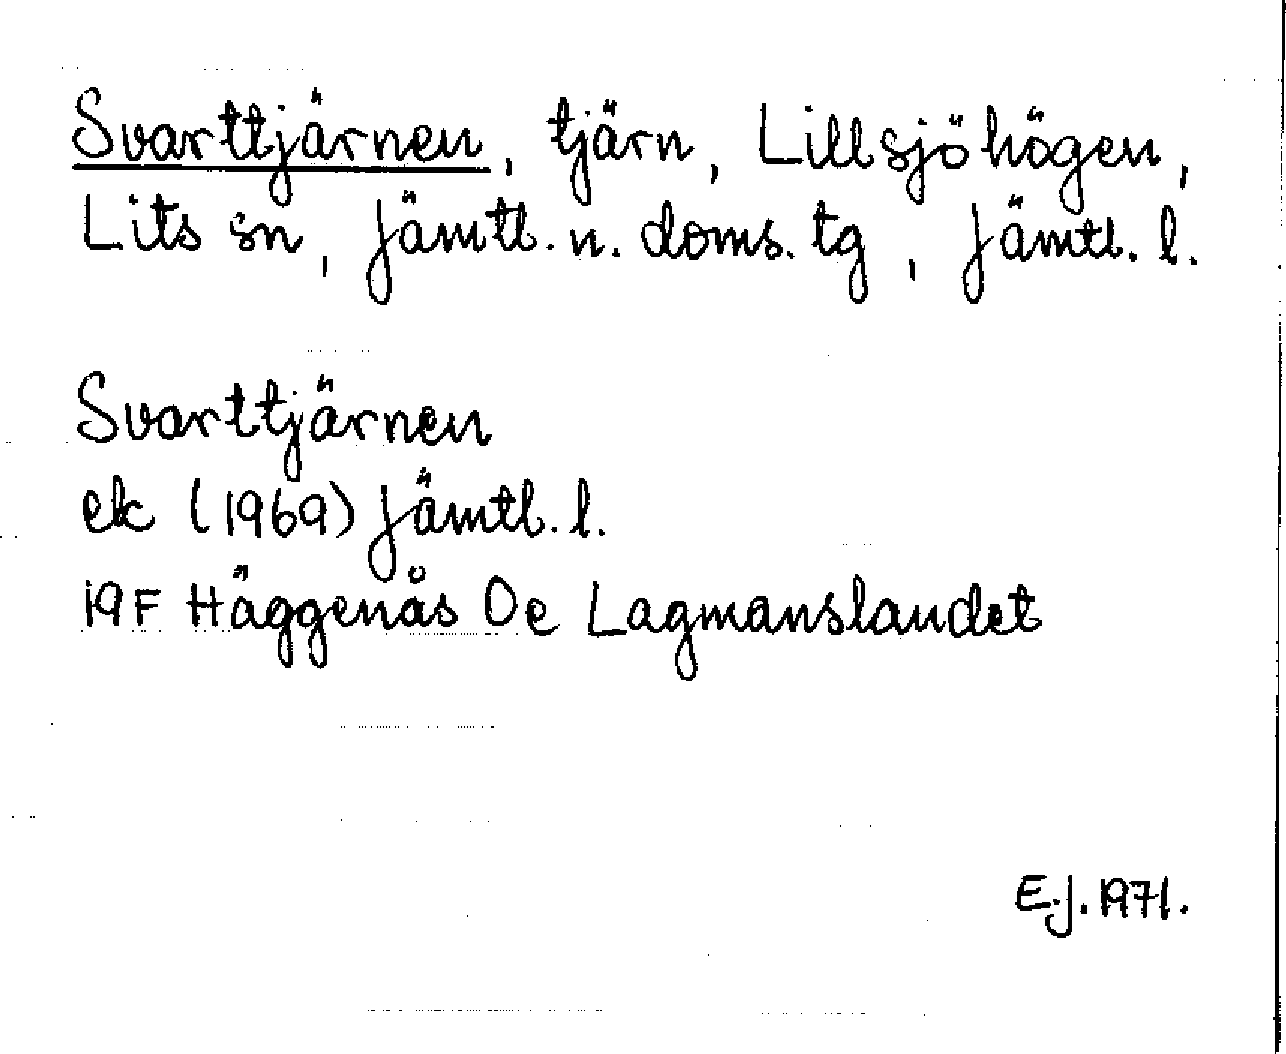 Svarttjärnen, tjärn, Lillsjöhögen,
Lits sn, Jämtl. n. doms. tg, Jämtl. l.
Svarttjärnen
ek (1969) Jämtl. l.
19F Häggenås Oe Lagmanslandet
E.J. 1971.